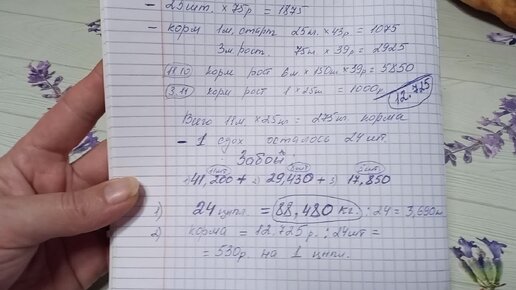 - 25 шт. × 75р = 1875
- корм 1м. старт 25м. × 43р = 1075
3м рост. 75м × 39р = 2925
11.10 корм рост 6м × 150м × 39р = 5850
3.11 корм рост 1 × 25м = 1000р
12.725
Всего 11м × 25м = 275м. корма
- 1 сдох осталось 24 шт
Забой
1) 41,200 + 2) 29,430 + 3) 17,850
1) 24 цыпл. = 88,480 кг. : 24 = 3,690
2) корма = 12.725 р. : 24шт =
= 530р. на 1 цыпл.